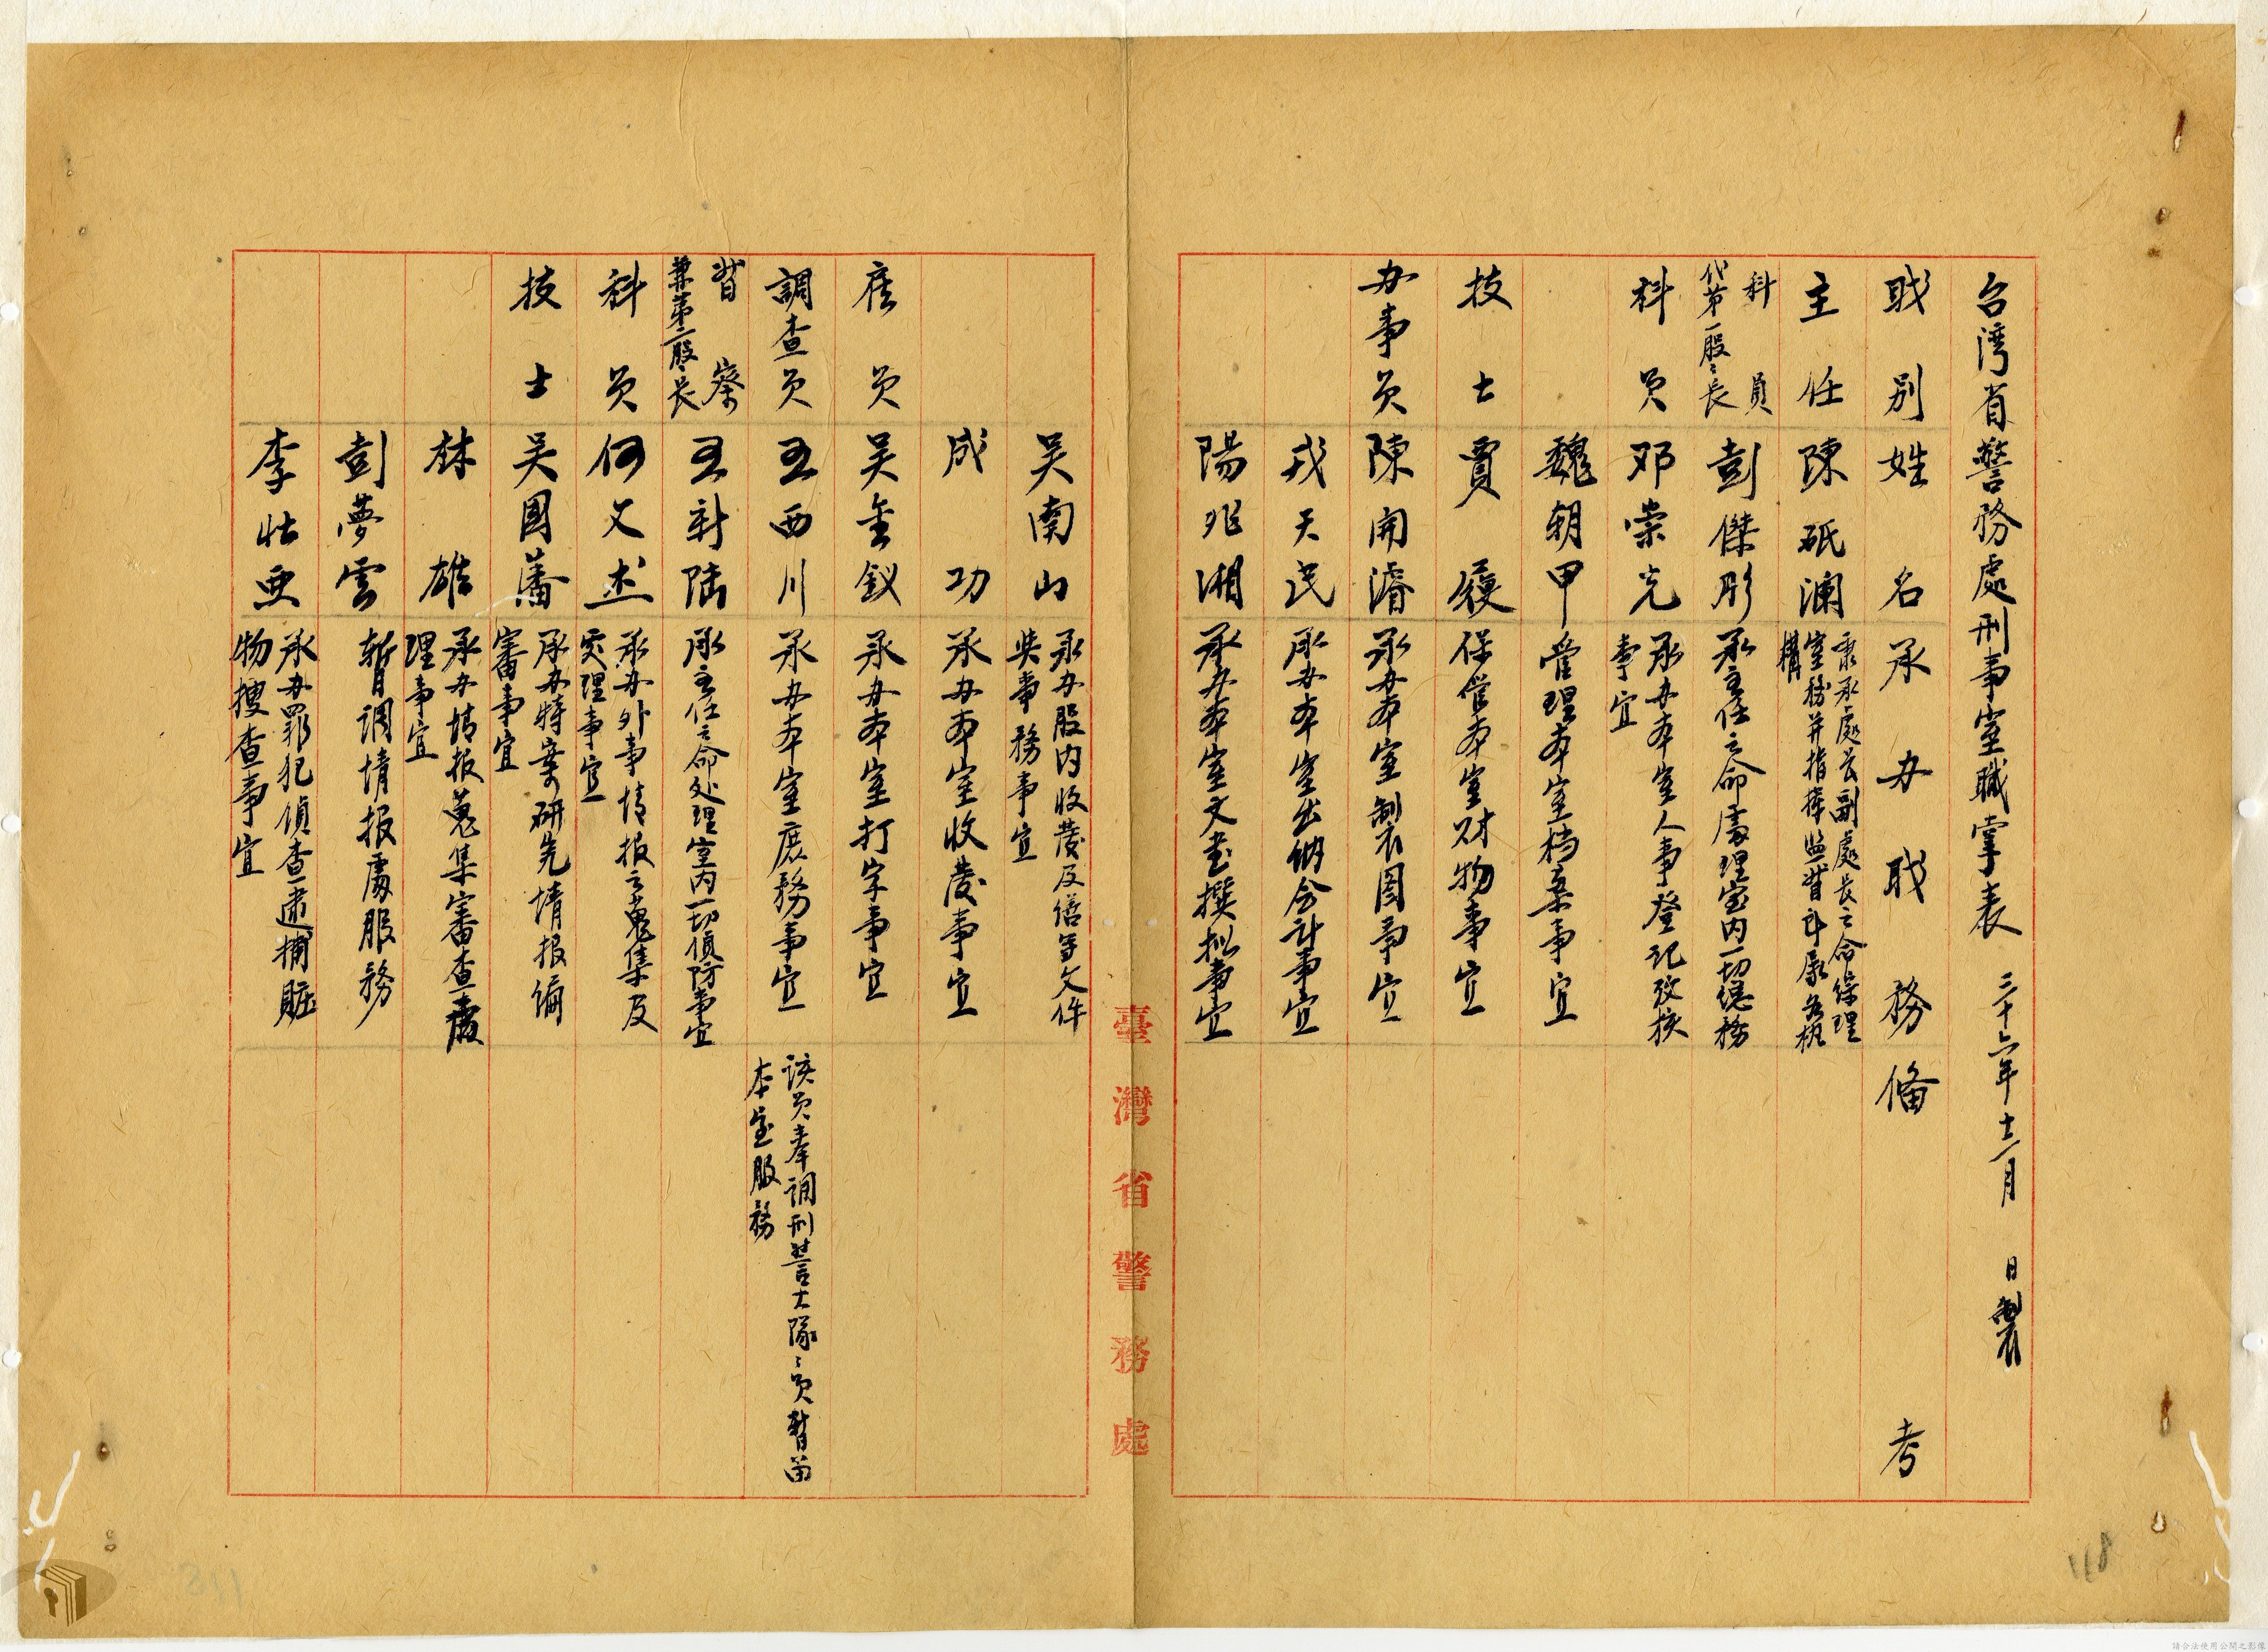 台湾省警務處刑事室職掌表 三十六年十二月 日製
职别 姓名 承办职務 備考
主任 陳砥瀾 秉承處長副處長之命綜理
室務并指揮監督所屬各机
構
科員
代第一股々長 彭傑彤 承主任之命處理室内一切總務
科员 邓崇光 承办本室人事登记攷核
事宜
魏朝甲 管理本室档案事宜
技士 賈履 保管本室财物事宜
办事员 陳開濬 承办本室制表图事宜
戎天民 承办本室出纳会计事宜
陽兆湘 承办本室文書撰拟事宜
臺灣省警務處
吴南山 承办股内收發及缮写文件
與事務事宜
成功 承办本室收發事宜
雇员 吴金釵 承办本室打字事宜
調查员 王西川 承办本室庶務事宜 该员奉调刑警大隊々员暫留
本室服務
督察
兼第二股々長 王新陆 承主任之命处理室内一切偵防事宜
科员 何文述 承办外事情报之蒐集及
處理事宜
技士 吴國藩 承办特案研究情报编
審事宜
林雄 承办情报蒐集審查處
理事宜
彭夢雲 暫调情报處服務
李壮亜 承办罪犯偵查逮捕賍
物搜查事宜
118
311
請合法使用公開之影像